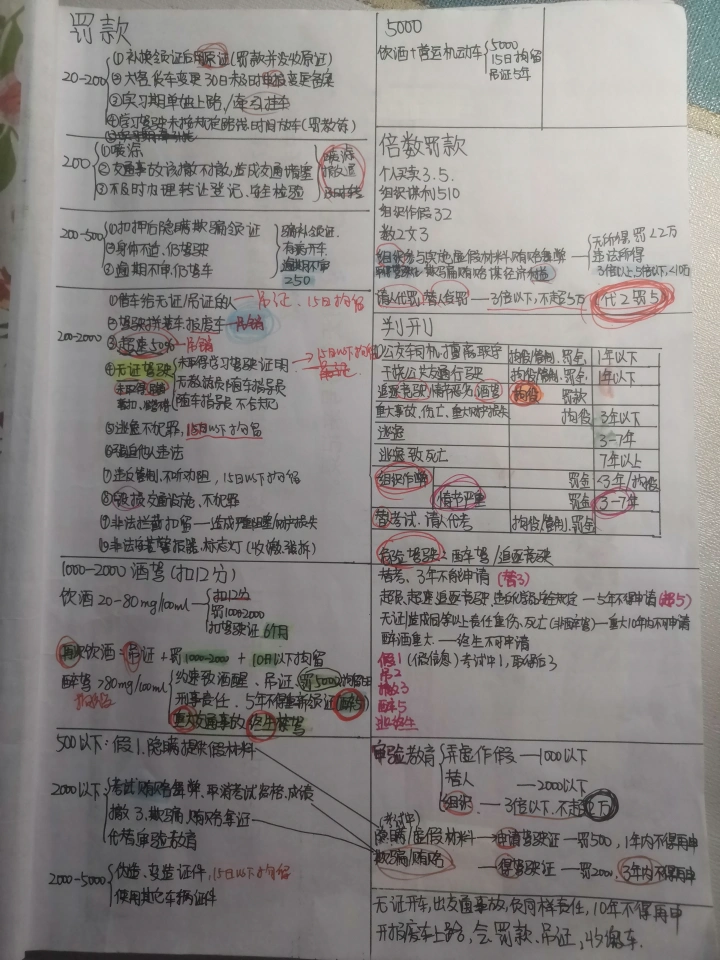 罚款
20-200
①补换领证后用原证(罚款并发收原证)
②大客货车变更30日未及时申报变更备案
③实习期单独上路/牵引挂车
④学习驾驶未按规定路线时间放车(罚教练)
200
①喷漆
②交通事故该撤不撤,造成交通堵塞
③不及时办理转让登记、安全检验
喷漆
撤
200-500
①扣押后隐瞒欺骗领证
②身体不适、仍驾驶
③逾期不审仍驾车
骗补领证.
有病开车.
逾期不审
250
200-2000
①借车给无证/吊证的人—吊证、15日拘留
②驾驶拼装车报废车—吊销
③超速50%—吊销
④无证驾驶
未取得学习驾驶证明
无教练员/随车指导员
随车指导员不合规
15日以下拘留
⑤逃逸不犯罪,15日以下拘留
⑥强迫他人违法
⑦违反管制、不听劝阻,15日以下拘留
⑧毁损交通设施、不犯罪
⑨非法拦截扣留—造成严重阻塞/财产损失
⑩非法安装警报器、标志灯(收缴强拆)
1000-2000 酒驾(扣12分)
饮酒 20-80mg/100ml
扣12分
罚1000-2000
扣驾驶证6个月
再次饮酒=吊证+罚1000-2000+10日以下拘留
醉驾>80mg/100ml
约束致酒醒、吊证、
刑事责任、5年不得重新领证(醉5)
重大交通事故终生禁驾
500以下:假1.隐瞒提供假材料
2000以下
考试贿赂舞弊、取消考试资格、成绩
撤3.欺骗、贿赂拿证
代替审验教育
2000-5000
伪造、变造证件,15日以下拘留
使用其它车辆证件
5000
饮酒+营运机动车
5000
15日拘留
吊证5年
倍数罚款
个人买卖3.5.
组织谋利510
组织作假32
教2文3
组织参与实施虚假材料、贿赂舞弊
无所得罚<2万
违法所得
3倍以上5倍以下<10万
请人代罚、替人受罚—3倍以下,不超5万
代2罚5
判刑
公交车司机擅离职守 拘役/管制、罚金 1年以下
干扰公共交通行驶 拘役/管制、罚金 1年以下
追逐竞驶,情节恶劣,酒驾 拘役 罚款
重大事故,伤亡,重大财产损失 拘役 3年以下
逃逸 3-7年
逃逸致死亡 7年以上
组织作弊 罚金 <3年/拘役
情节严重 罚金 3-7年
替考试、请人代考 拘役/管制、罚金
危险驾驶:醉车驾/追逐竞驶
替考、3年不能申请(替3)
超员、超速追逐竞驶、违反危险品安全规定—5年不得申请(超5)
无证造成同等以上责任重伤、死亡—重大10年内不可申请
醉酒重大—终生不可申请
假1(假信息)考试中1,取得后3
吊2
撤3
醉5
逃终生
审验教育
弄虚作假—1000以下
替人—2000以下
组织—3倍以下、不超2万
(考试中)
隐瞒/虚假材料—申请驾驶证—罚500,1年内不得再申
欺骗/贿赂—得驾驶证—罚2000,3年内不得再申
无证开车,出交通事故,负同样责任,10年不得再申
开报废车上路,会罚款、吊证,收缴车.